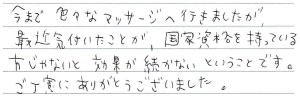 今まで 色々なマッサージへ行きましたが、
最近気付いたことが、国家資格を持っている
方じゃないと 効果が続かない ということです。
ご丁寧にありがとうございました。